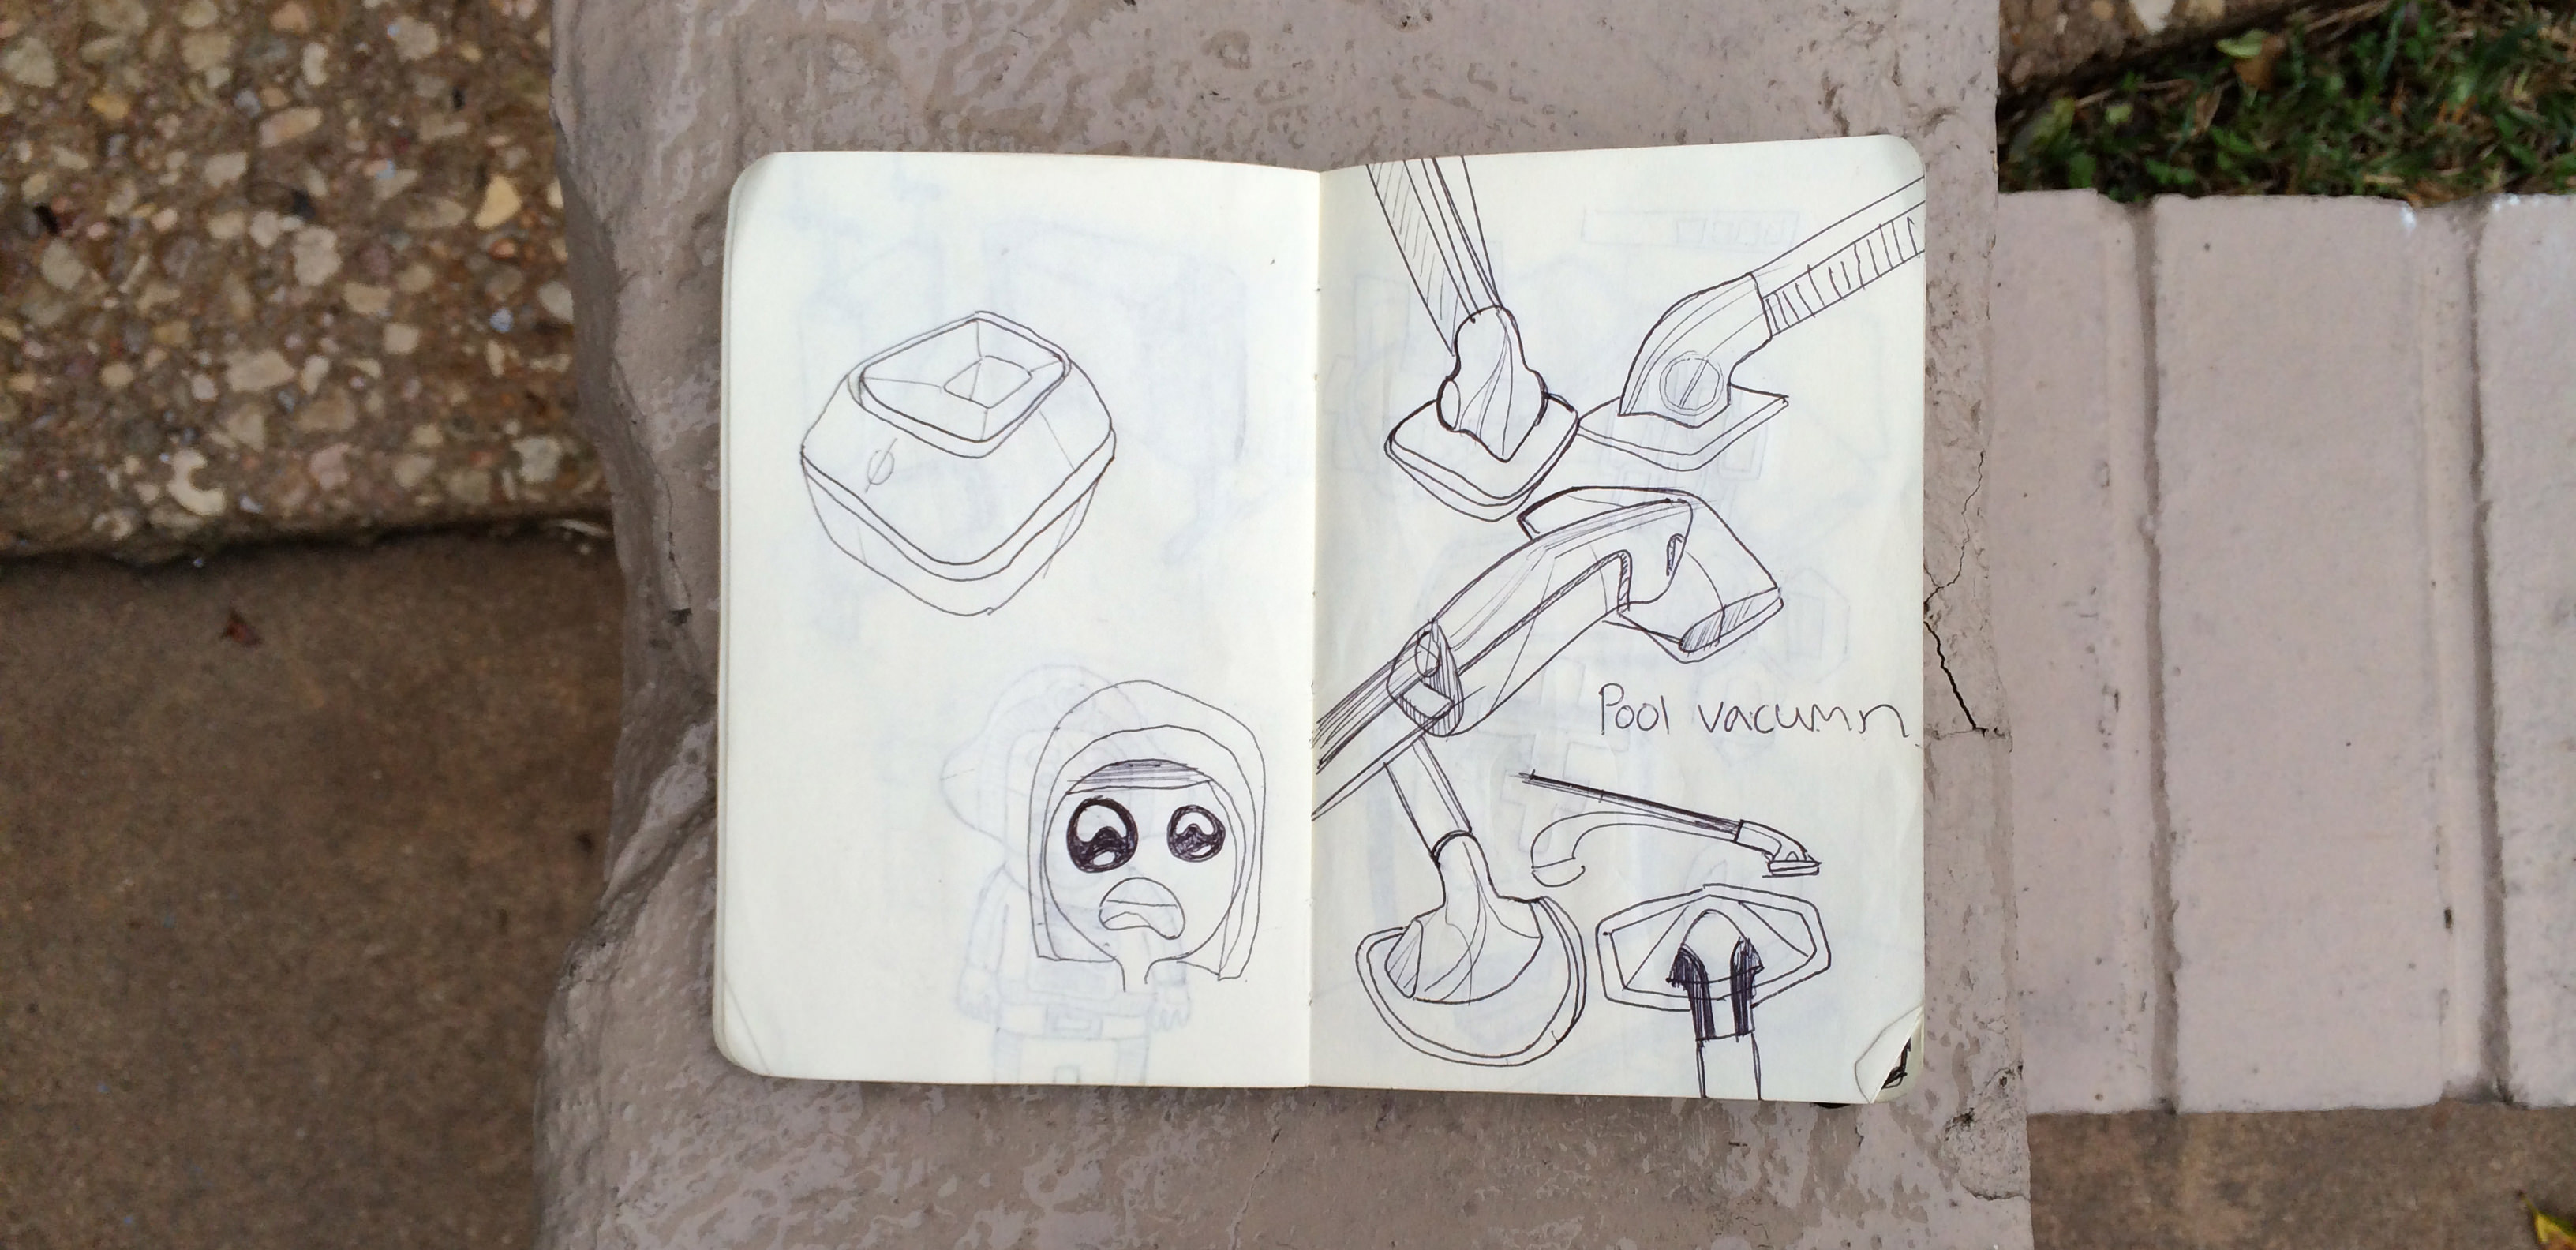 Pool vacumn